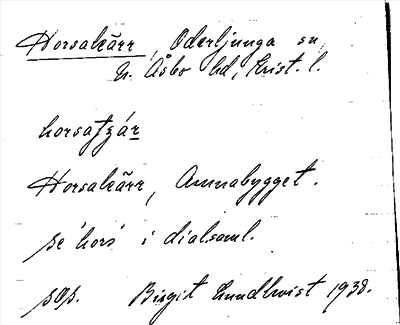 Horsakärr, Oderljunga sn
N. Åsbo hd, Krist. l.
Horsakärr, Annabygget.
se 'hors' i dialsaml.
sep. Birgit Lundkvist 1938.